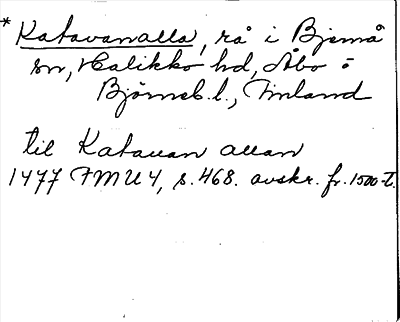 * Katavanalla, rå i Bjernå
sn, Halikko hd, Åbo o
Björneb. l., Finland
til Katauan allan
1477 FMU 4, s. 468. avskr. fr. 1500-t.